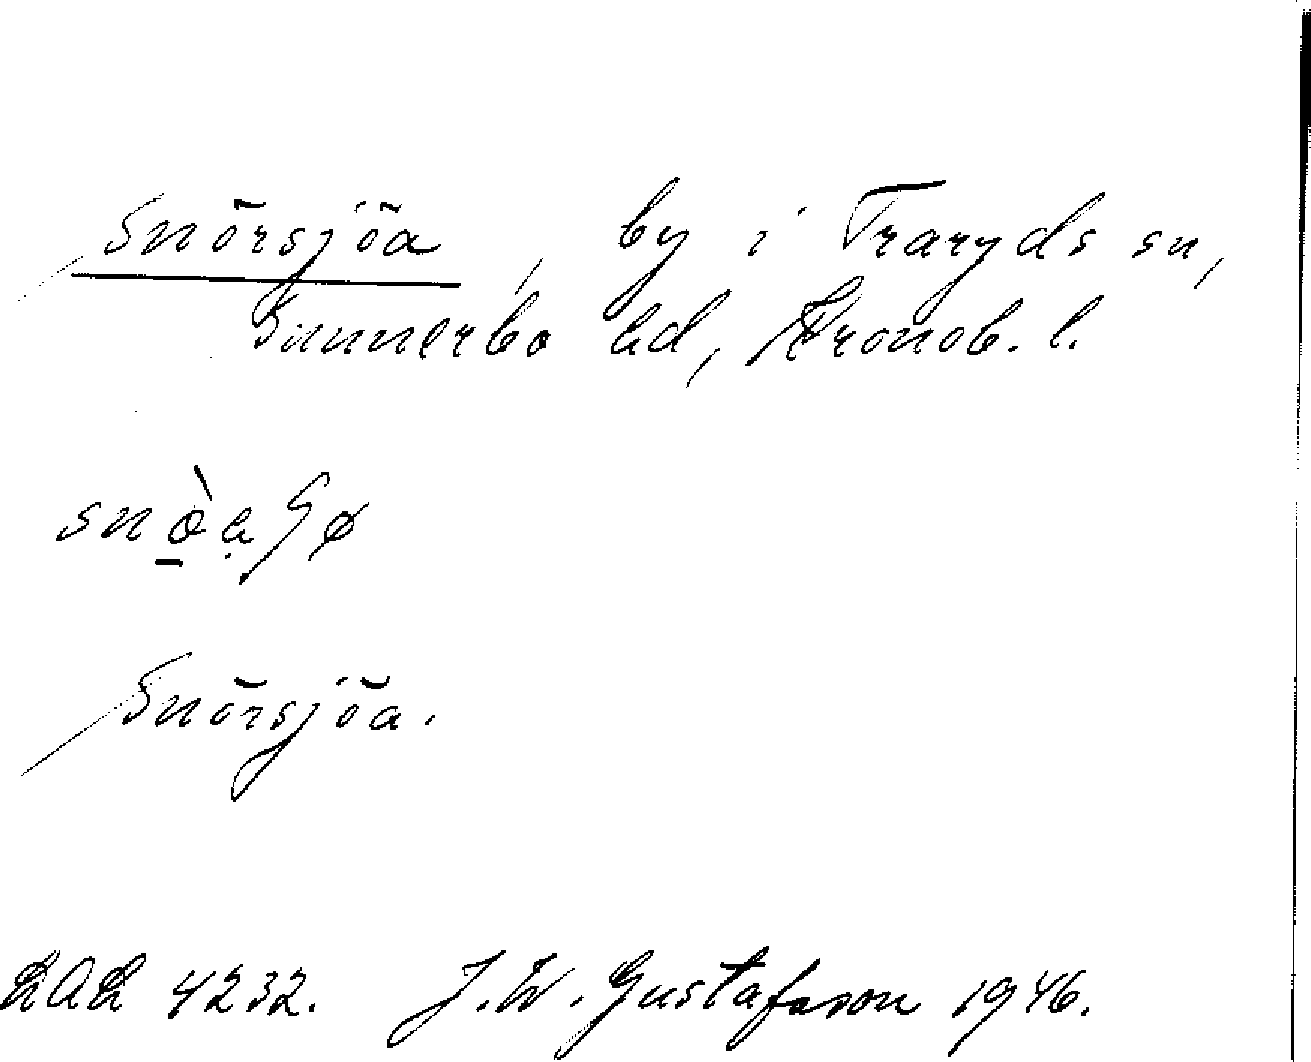 Snörsjöa, by i Traryds sn,
Sunnerbo hd, Kronob. l.
Snörsjöa.
LAL 4232. J. W. Gustafsson 1946.